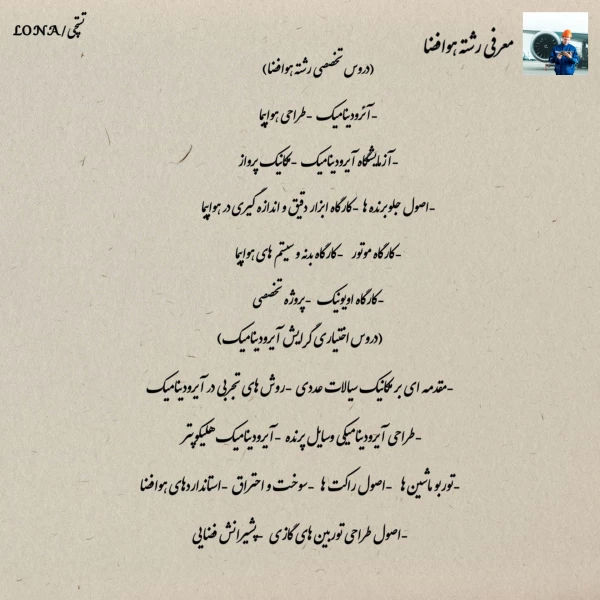 تستچی/LONA
معرفی رشته هوافضا
(دروس تخصصی رشته هوافضا)
-آئرودینامیک -طراحی هواپیما
-آزمایشگاه آیرودینامیک -مکانیک پرواز
-اصول جلوبرنده ها -کارگاه ابزار دقیق و اندازه گیری در هواپیما
-کارگاه موتور -کارگاه بدنه و سیستم های هواپیما
-کارگاه اویونیک -پروژه تخصصی
(دروس اختیاری گرایش آیرودینامیک)
-مقدمه ای بر مکانیک سیالات عددی -روش های تجربی در آیرودینامیک
-طراحی آیرودینامیکی وسایل پرنده -آیرودینامیک هلیکوپتر
-توربو ماشین ها -اصول راکت ها -سوخت و احتراق -استانداردهای هوافضا
-اصول طراحی توربین های گازی -پیشرانش فضایی